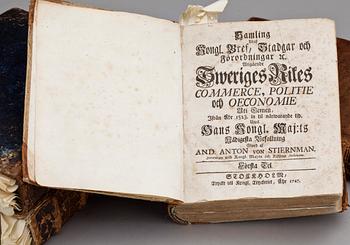 Samling
Utaf
Kongl. Bref, Stadgar och
Förordningar &c.
Angående
Sweriges Rikes
COMMERCE, POLITIE
och OECONOMIE
Uti Gemen,
Ifrån Åhr 1523. in til närwarande tid.
Uppå
Hans Kongl. Maj:ts
Nådigesta Befallning
Giord af
AND. ANTON VON STIERNMAN.
Första Del
STOCKHOLM,
Tryckt uti Kongl. Tryckeriet, Åhr 1747.